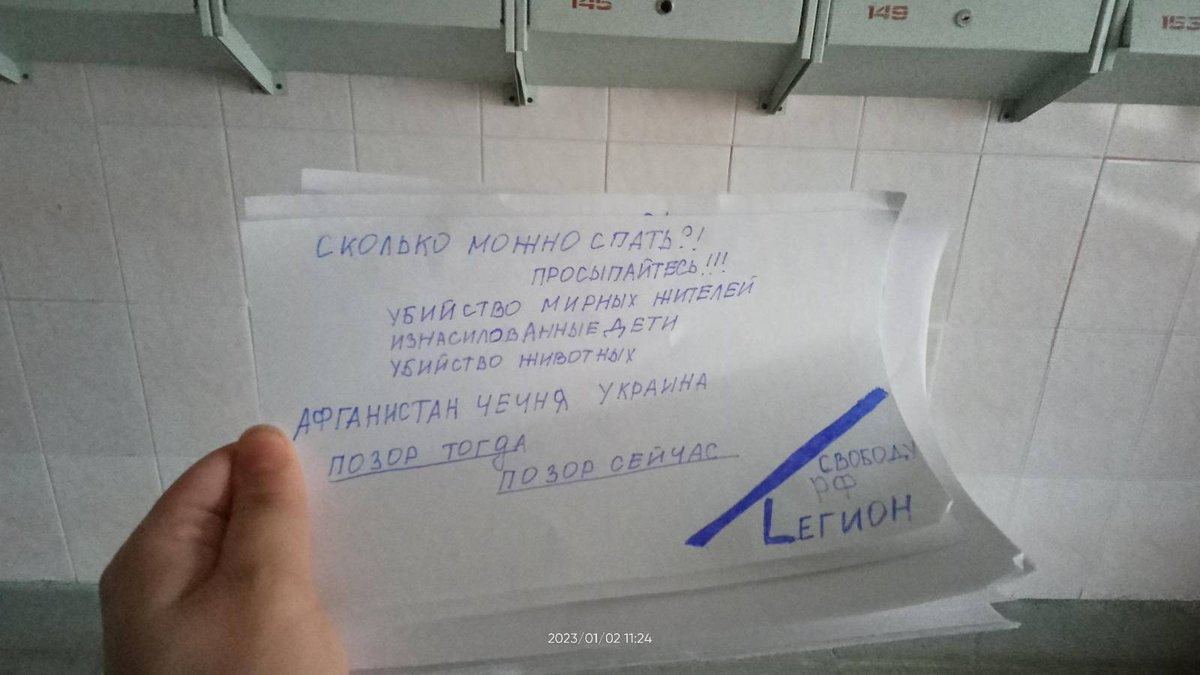 145
149
153
СКОЛЬКО МОЖНО СПАТЬ?!
ПРОСЫПАЙТЕСЬ!!!
УБИЙСТВО МИРНЫХ ЖИТЕЛЕЙ
ИЗНАСИЛОВАННЫЕ ДЕТИ
УБИЙСТВО ЖИВОТНЫХ
АФГАНИСТАН ЧЕЧНЯ УКРАИНА
ПОЗОР ТОГДА
ПОЗОР СЕЙЧАС
СВОБОДУ
РФ
LЕГИОН
2023/01/02 11:24